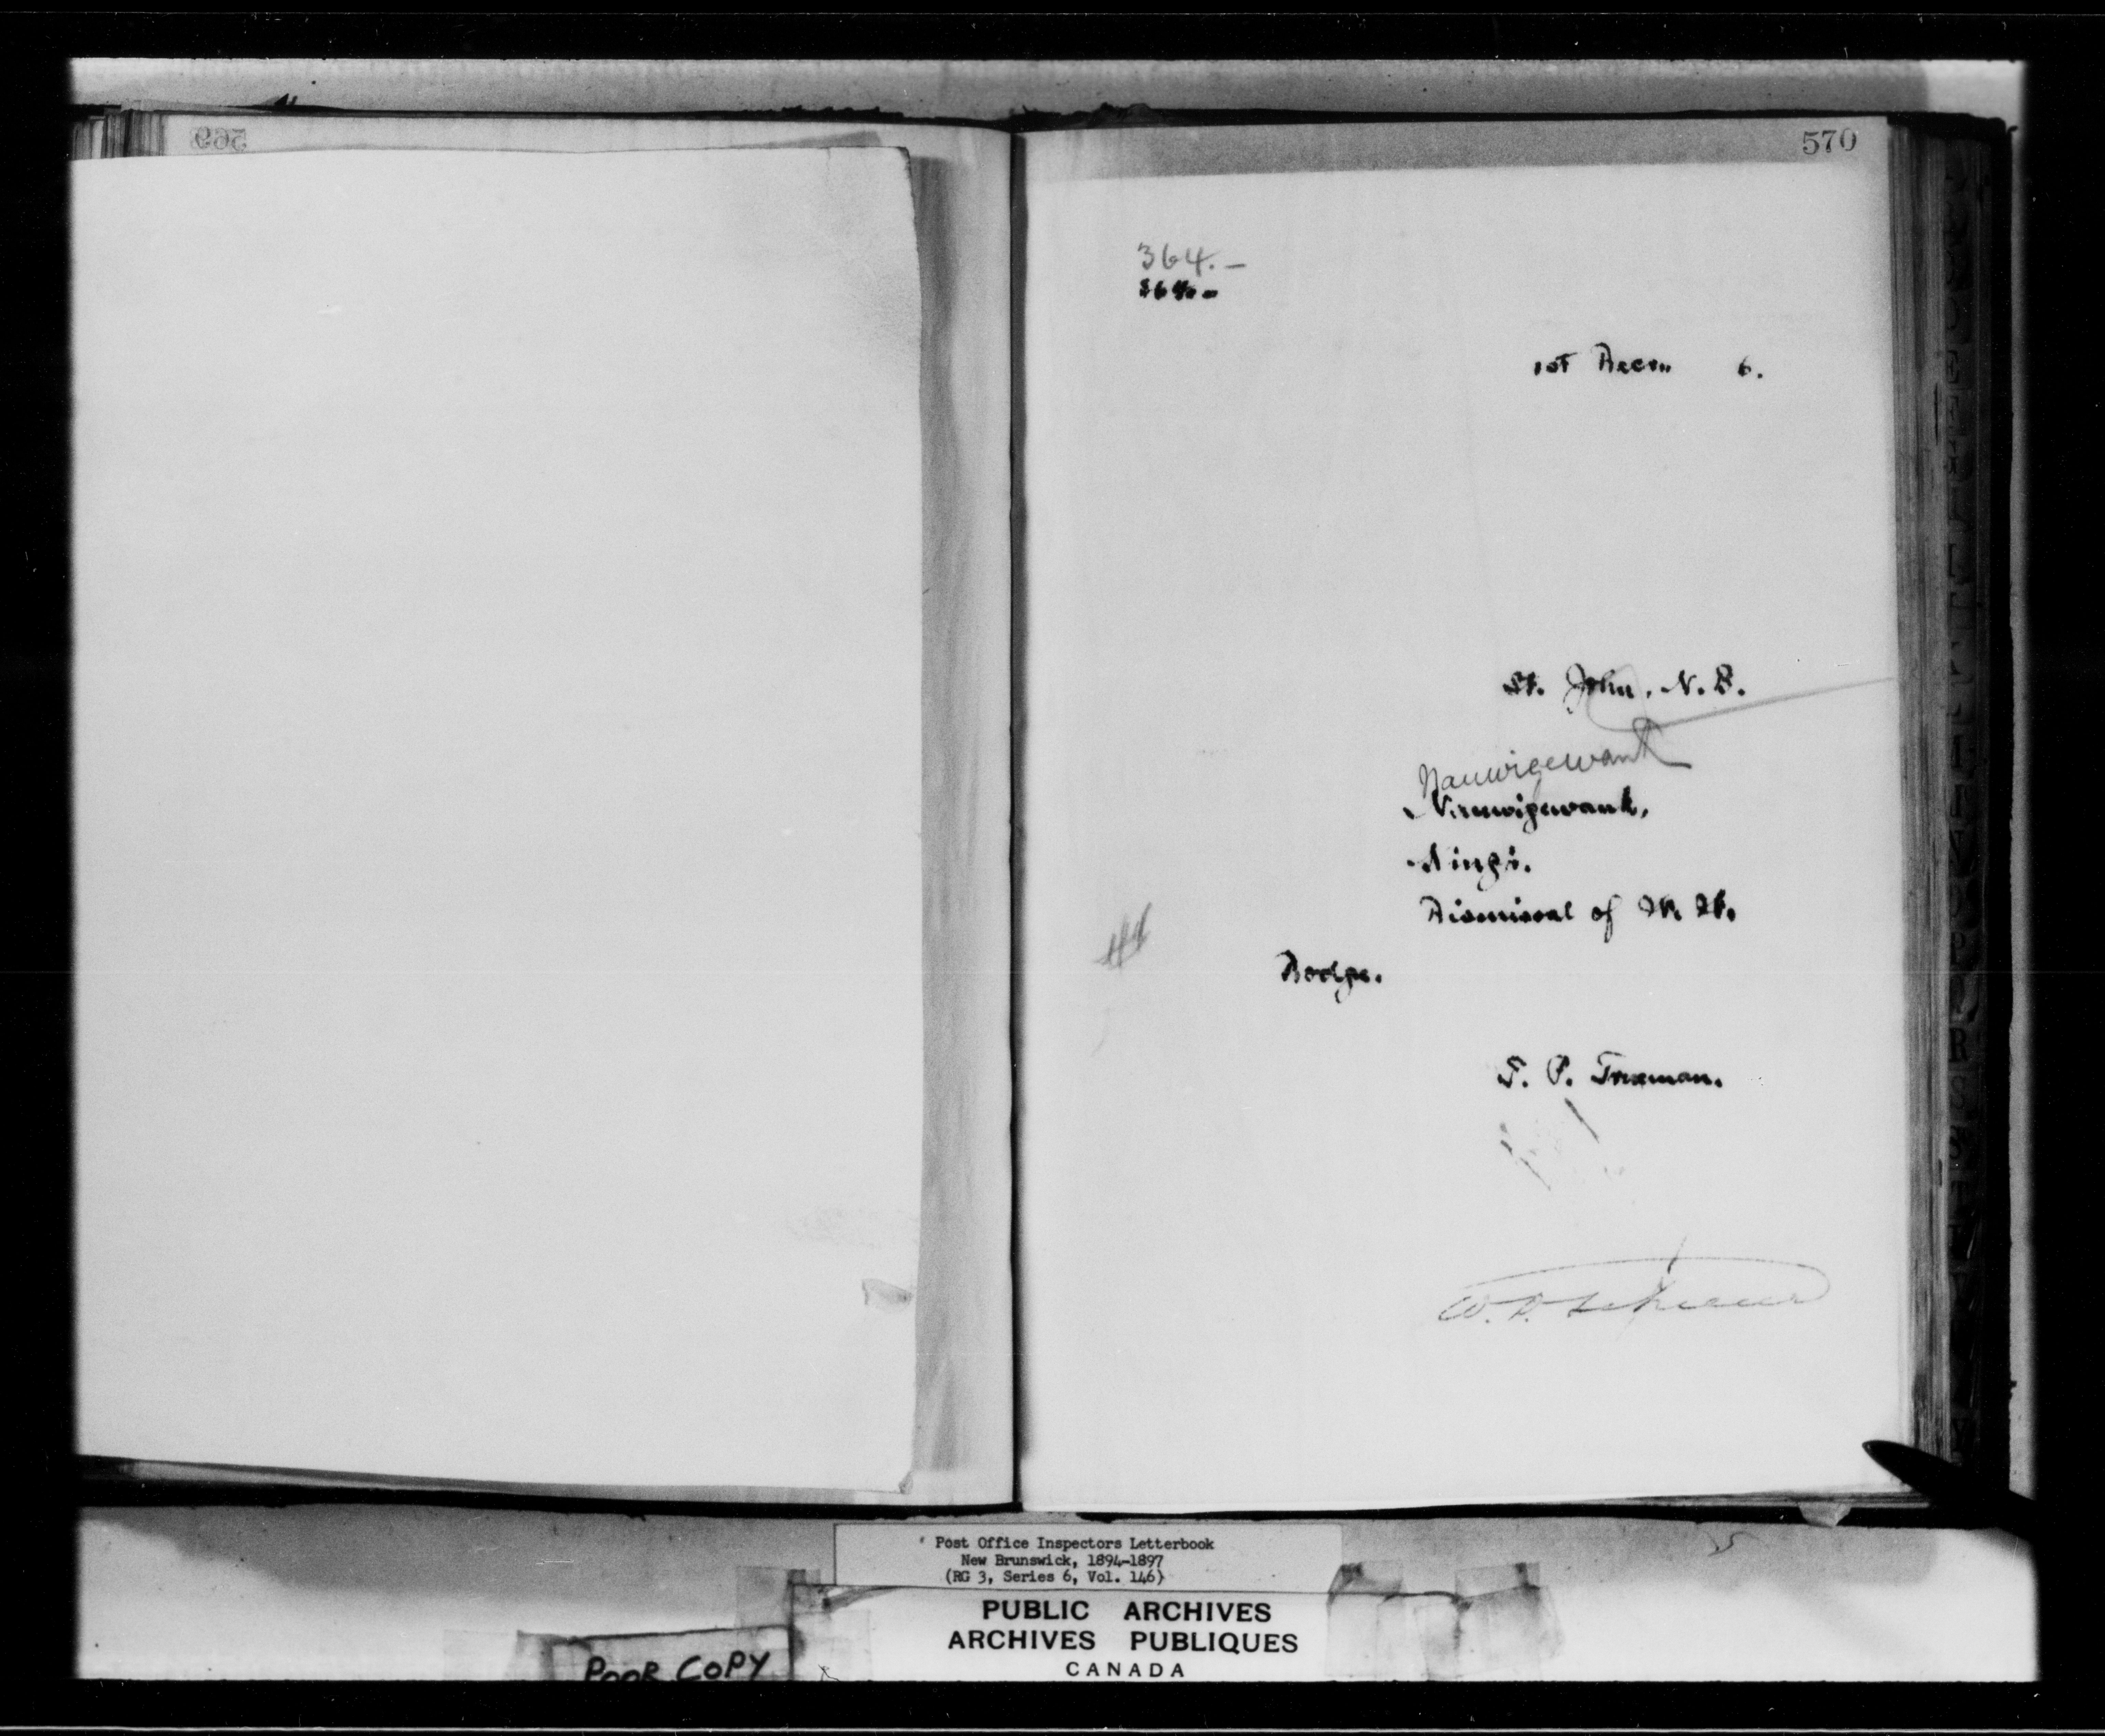 569
570
364.-
364.-
1st Decr. 6.
St. John, N. B.
Nauwigewauk
Nauwigewauk,
Kings.
Dismissal of W. W.
Dodge.
T. P. Trueman.
W. D.
Post Office Inspectors Letterbook
New Brunswick, 1894-1897
(RG 3, Series 6, Vol. 146)
PUBLIC ARCHIVES
ARCHIVES PUBLIQUES
CANADA
POOR COPY